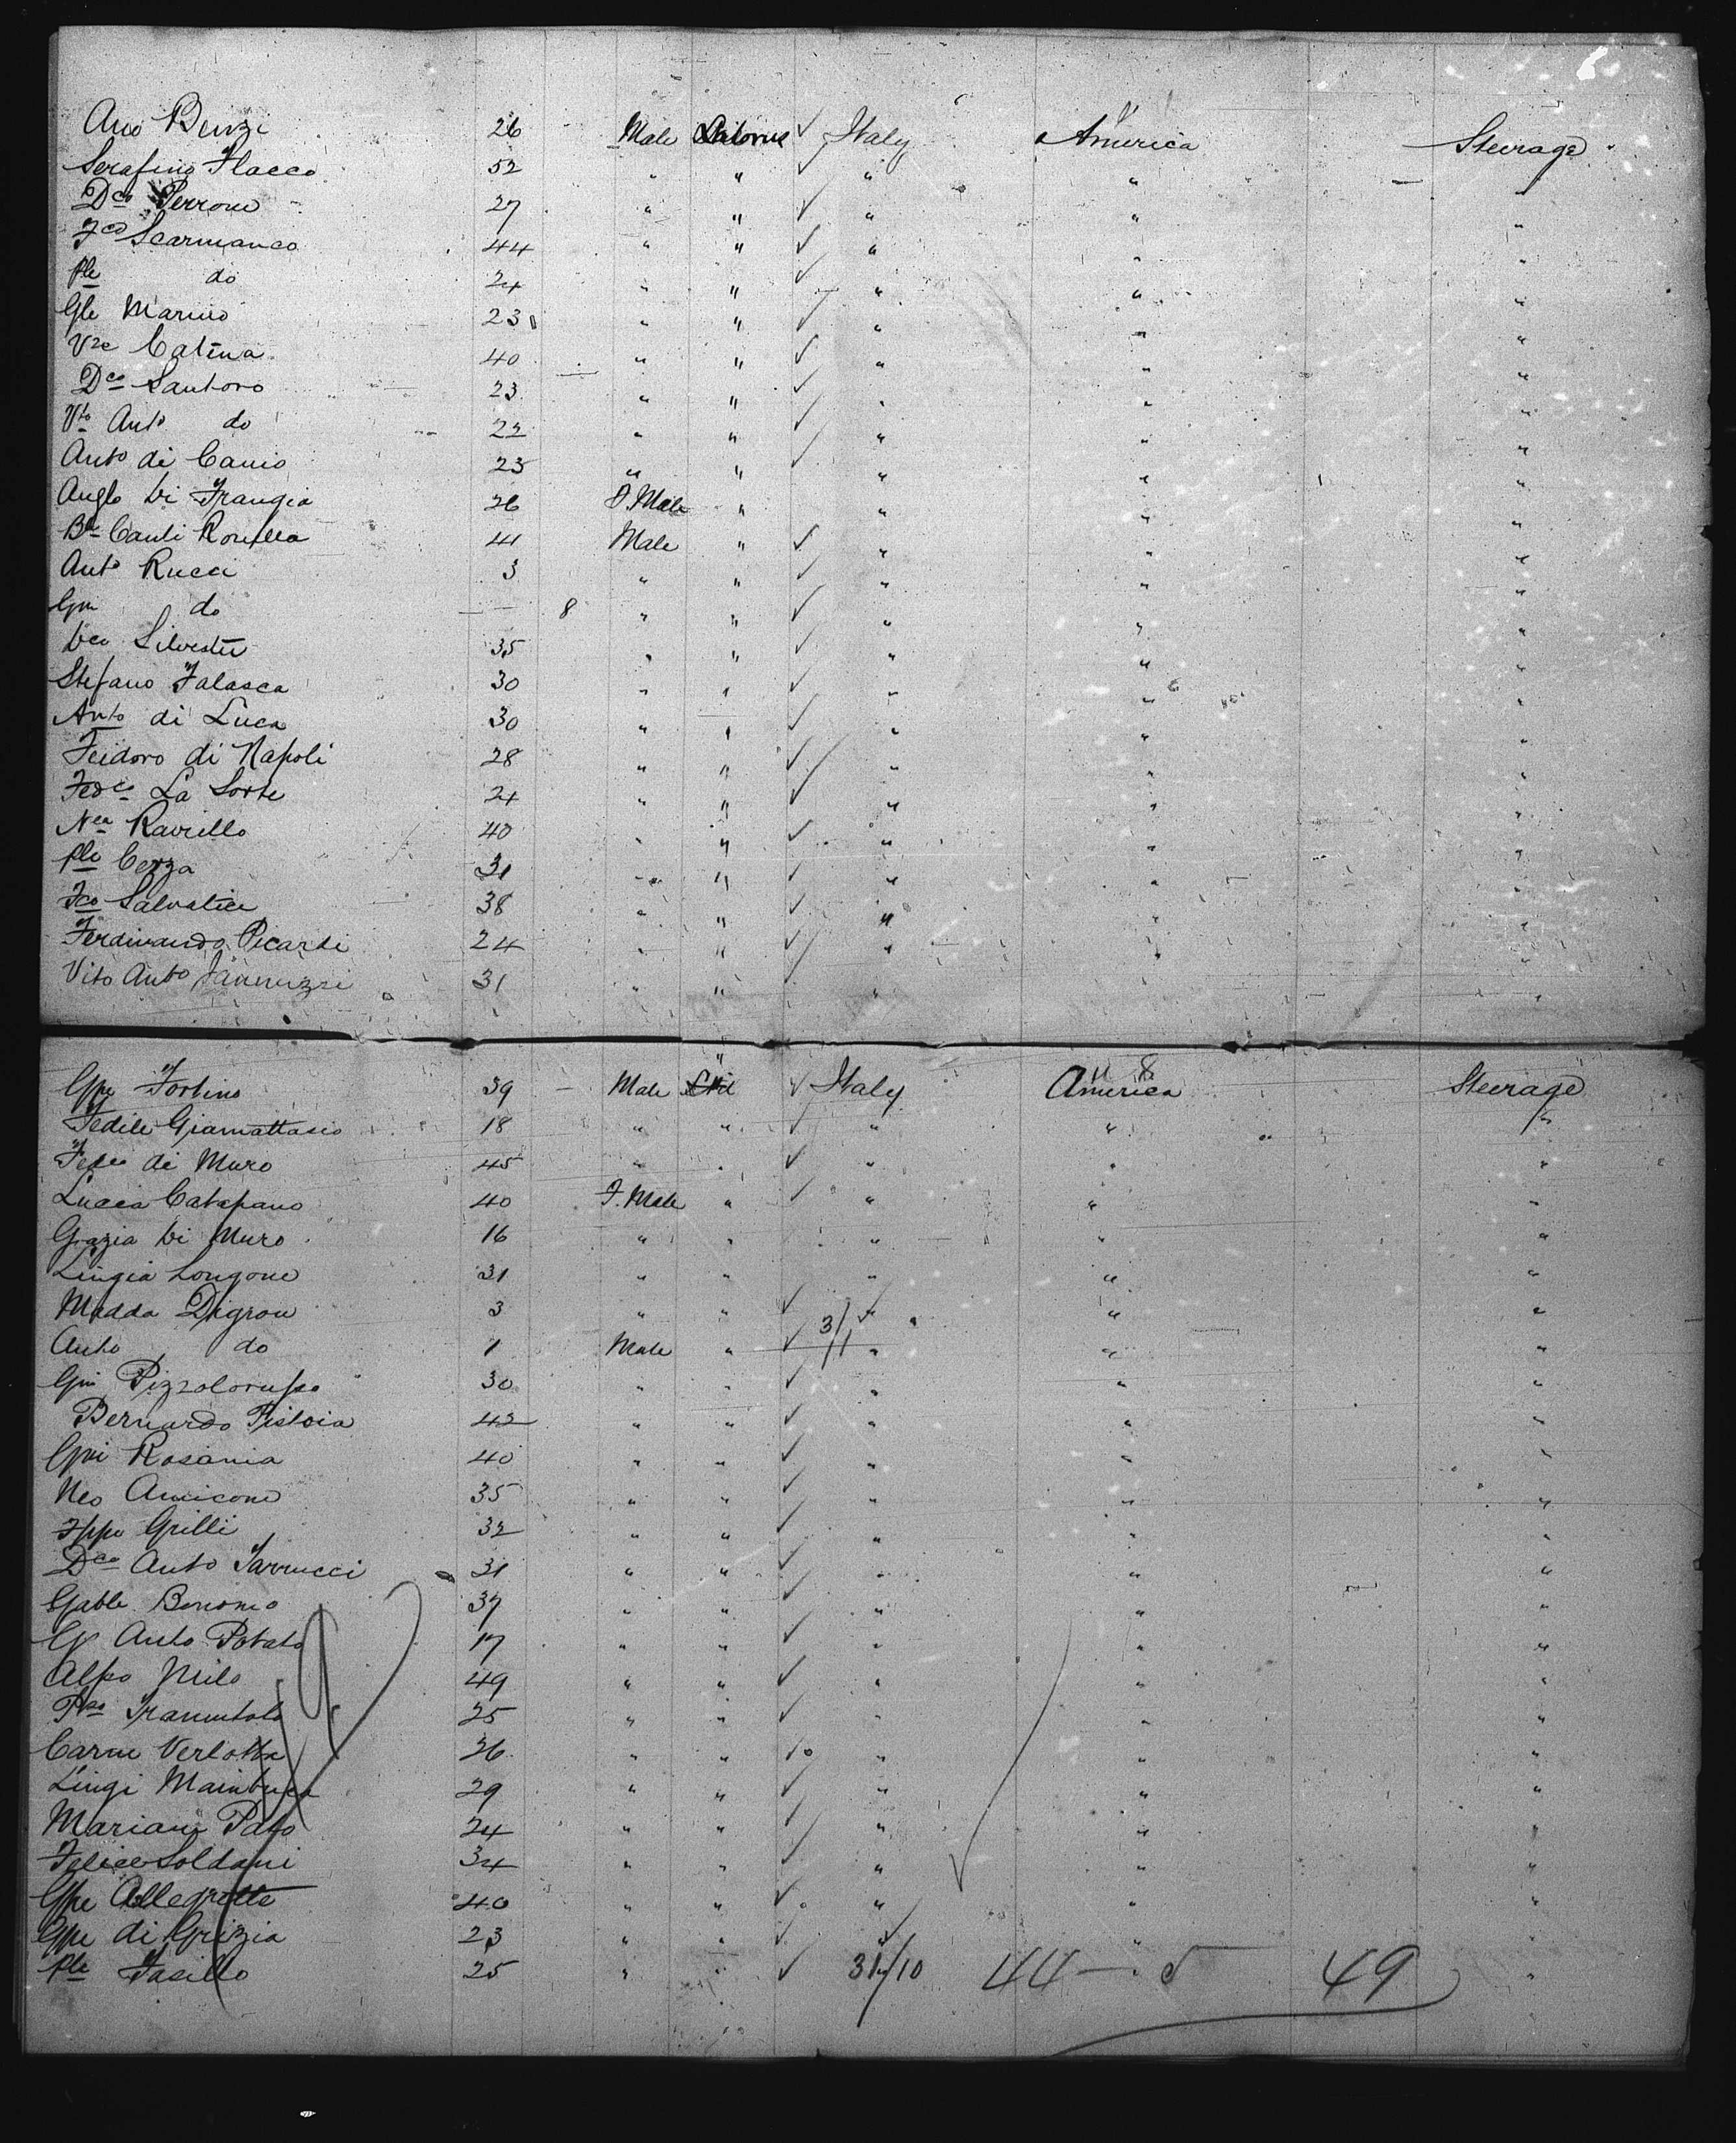 26 Male Italy America Steerage
Serafino Flacco 52 " " " " "
Dco Perrone 27 " " " " "
Fco Scarmanco 44 " " " " "
Ple do 24 " " " " "
Gle Marino 23 " " " " "
Vze Catena 40 " " " " "
Dco Santoro 23 " " " " "
Vto Anto do 22 " " " " "
Anto di Canio 23 " " " " "
Anglo Di Frangia 26 F. Male " " " "
41 Male " " " "
Anto Rucci 3 " " " " "
Gni do 8 " " " " "
Dco Silvestri 35 " " " " "
Stefano Falasca 30 " " " " "
Anto di Luca 30 " " " " "
di Napoli 28 " " " " "
Fedco La Sorte 24 " " " " "
Nea Raviello 40 " " " " "
Ple Cerza 31 " " " " "
Fco 38 " " " " "
Ferdinando Picardi 24 " " " " "
Vito Anto Iannuzzi 31 " " "
Gpe Fortino 39 Male Italy America Steerage
Fedele Giamattasio 18 " " " " "
di Muro 45 " " " " "
Lucia Catapano 40 F. Male " " " "
Grazia Di Muro 16 " " " " "
Longone 31 " " " " "
Madda Digrou 3 " " " " "
Anto do 1 Male " 3/1 " " "
Gni Pizzolorusso 30 " " " " "
Bernardo Pistoia 42 " " " " "
Gni Rosania 40 " " " " "
Neo Amicone 35 " " " " "
Fppo Grilli 32 " " " " "
Dco Anto Iannucci 31 " " " " "
Gable Bonomo 37 " " " " "
G Anto Potato 17 " " " " "
Alfso Milo 49 " " " " "
Pso Tramutolo 25 " " " " "
Carm Verlotta 26 " " " " "
Luigi 29 " " " " "
Mariano Pato 24 " " " " "
Felice Soldani 34 " " " " "
Gpe Allegretto 40 " " " " "
Gpe di Grizia 23 " " " " "
Ple Fasillo 25 " " 31/10 44 — 5 49 "